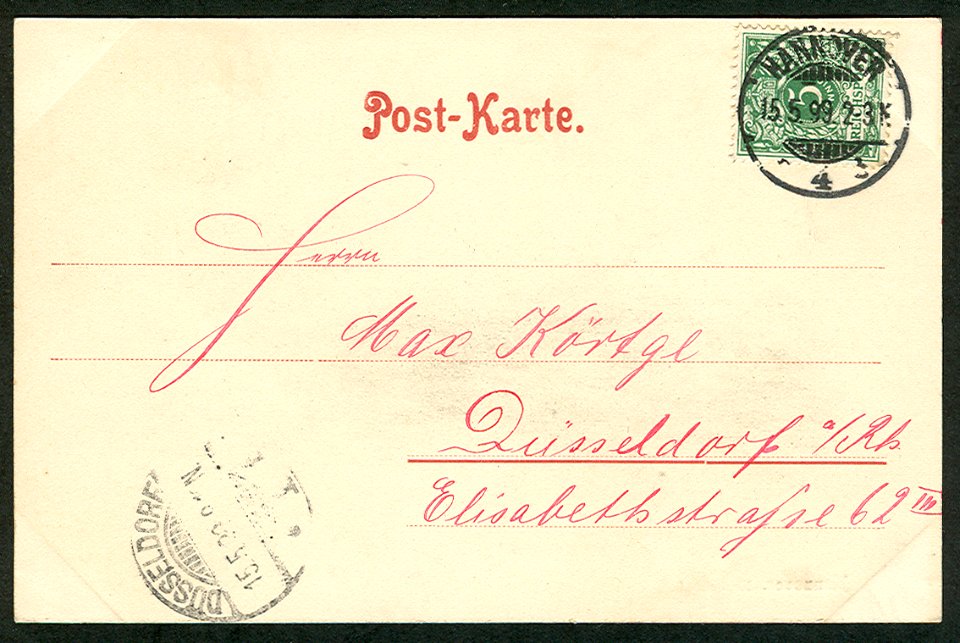 HANNOVER
15.5.99.2-3N.
4
5
REICHSP
Post-Karte.
Herrn
Max Körtge
Düsseldorf a/Rh.
Elisabethstraſse 62 III
DÜSSELDORF
15.5.99
1